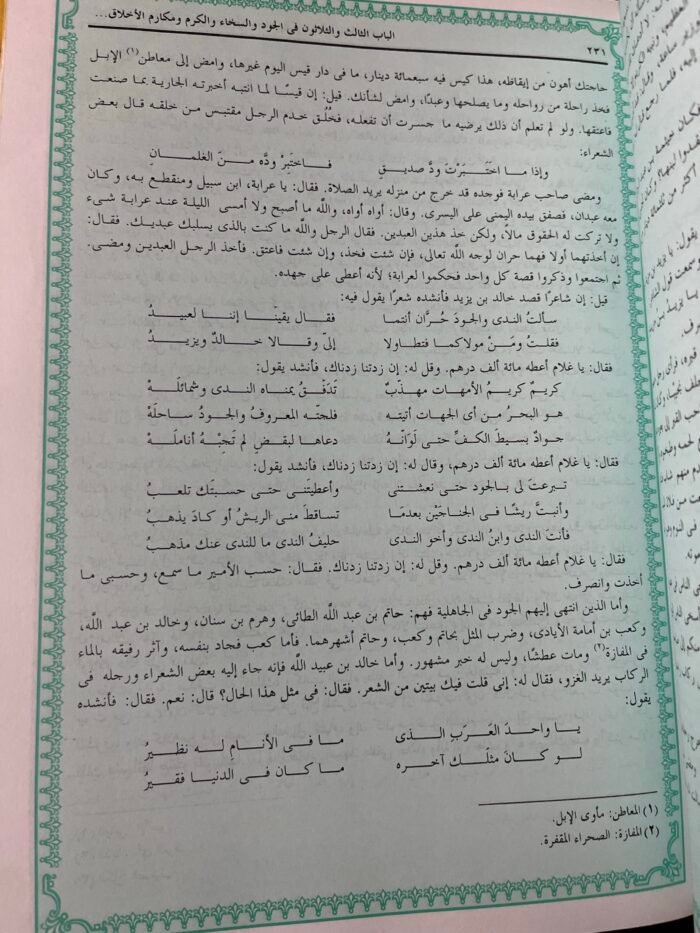 الباب الثالث والثلاثون فى الجود والسخاء والكرم ومكارم الأخلاق...
٢٣١
حاجتك أهون من إيقاظه، هذا كيس فيه سبعمائة دينار، ما فى دار قيس اليوم غيرها، وامض إلى معاطن(١) الإبل
فخذ راحلة من رواحله وما يصلحها وعبدًا، وامض لشأنك. قيل: إن قيسًا لما انتبه أخبرته الجارية بما صنعت
فاعتقها. ولو لم تعلم أن ذلك يرضيه ما جسرت أن تفعله، فخُلُق خدم الرجل مقتبس من خلقه قال بعض
الشعراء:
وإذا ما اختَبَرْتَ ودَّ صديقٍ فاختَبِرْ ودَّه منَ الغلمانِ
ومضى صاحب عرابة فوجده قد خرج من منزله يريد الصلاة. فقال: يا عرابة، ابن سبيل ومنقطع به، وكان
معه عبدان، فصفق بيده اليمنى على اليسرى. وقال: أواه أواه، والله ما أصبح ولا أمسى الليلة عند عرابة شىء
ولا تركت له الحقوق مالاً، ولكن خذ هذين العبدين. فقال الرجل والله ما كنت بالذى يسلبك عبديك. فقال:
إن أخذتهما أولا فهما حران لوجه الله تعالى، فإن شئت فخذ، وإن شئت فاعتق. فأخذ الرجل العبدين ومضى.
ثم اجتمعوا وذكروا قصة كل واحد فحكموا لعرابة؛ لأنه أعطى على جهده.
قيل: إن شاعرًا قصد خالد بن يزيد فأنشده شعرًا يقول فيه:
سألتُ الندى والجودَ حُرَّان أنتما فقال يقينًا إننا لعبيدُ
فقلتُ ومَنْ مولاكما فتطاولا إلىّ وقالا خالدٌ ويزيدُ
فقال: يا غلام أعطه مائة ألف درهم. وقل له: إن زدتنا زدناك، فأنشد يقول:
كريمٌ كريمُ الأمهات مهذّبٌ تَدَفّقُ يمناه الندى وشمائلَهْ
هو البحرُ من أى الجهات أتيته فلجتَه المعروفُ والجودُ ساحلَهْ
جوادٌ بسيطُ الكفِّ حتى لَوَانَهُ دعاها لبقضٍ لم تَجبْهُ أناملَهْ
فقال: يا غلام أعطه مائة ألف درهم، وقال له: إن زدتنا زدناك، فأنشد يقول:
تبرعتَ لى بالجود حتى نعشتنى وأعطيتنى حتى حسبتك تلعبُ
وأنبتَّ ريشًا فى الجناحَيْن بعدما تساقطَ منى الريشُ أو كادَ يذهبُ
فأنتَ الندى وابنُ الندى وأخو الندى حليفُ الندى ما للندى عنك مذهبُ
فقال: يا غلام أعطه مائة ألف درهم. وقل له: إن زدتنا زدناك. فقال: حسب الأمير ما سمع، وحسبى ما
أخذت وانصرف.
وأما الذين انتهى إليهم الجود فى الجاهلية فهم: حاتم بن عبد الله الطائى، وهرم بن سنان، وخالد بن عبد الله،
وكعب بن أمامة الأيادى، وضرب المثل بحاتم وكعب، وحاتم أشهرهما. فأما كعب فجاد بنفسه، وآثر رفيقه بالماء
فى المفازة(٢) ومات عطشًا، وليس له خبر مشهور. وأما خالد بن عبيد الله فإنه جاء إليه بعض الشعراء ورجله فى
الركاب يريد الغزو، فقال له: إنى قلت فيك بيتين من الشعر. فقال: فى مثل هذا الحال؟ قال: نعم. فقال: فأنشده
يقول:
يا واحدَ العَرَبِ الذى ما فى الأنامِ له نظيرُ
لو كانَ مثلَك آخره ما كان فى الدنيا فقيرُ
(١) المعاطن: مأوى الإبل.
(٢) المفازة: الصحراء المقفرة.